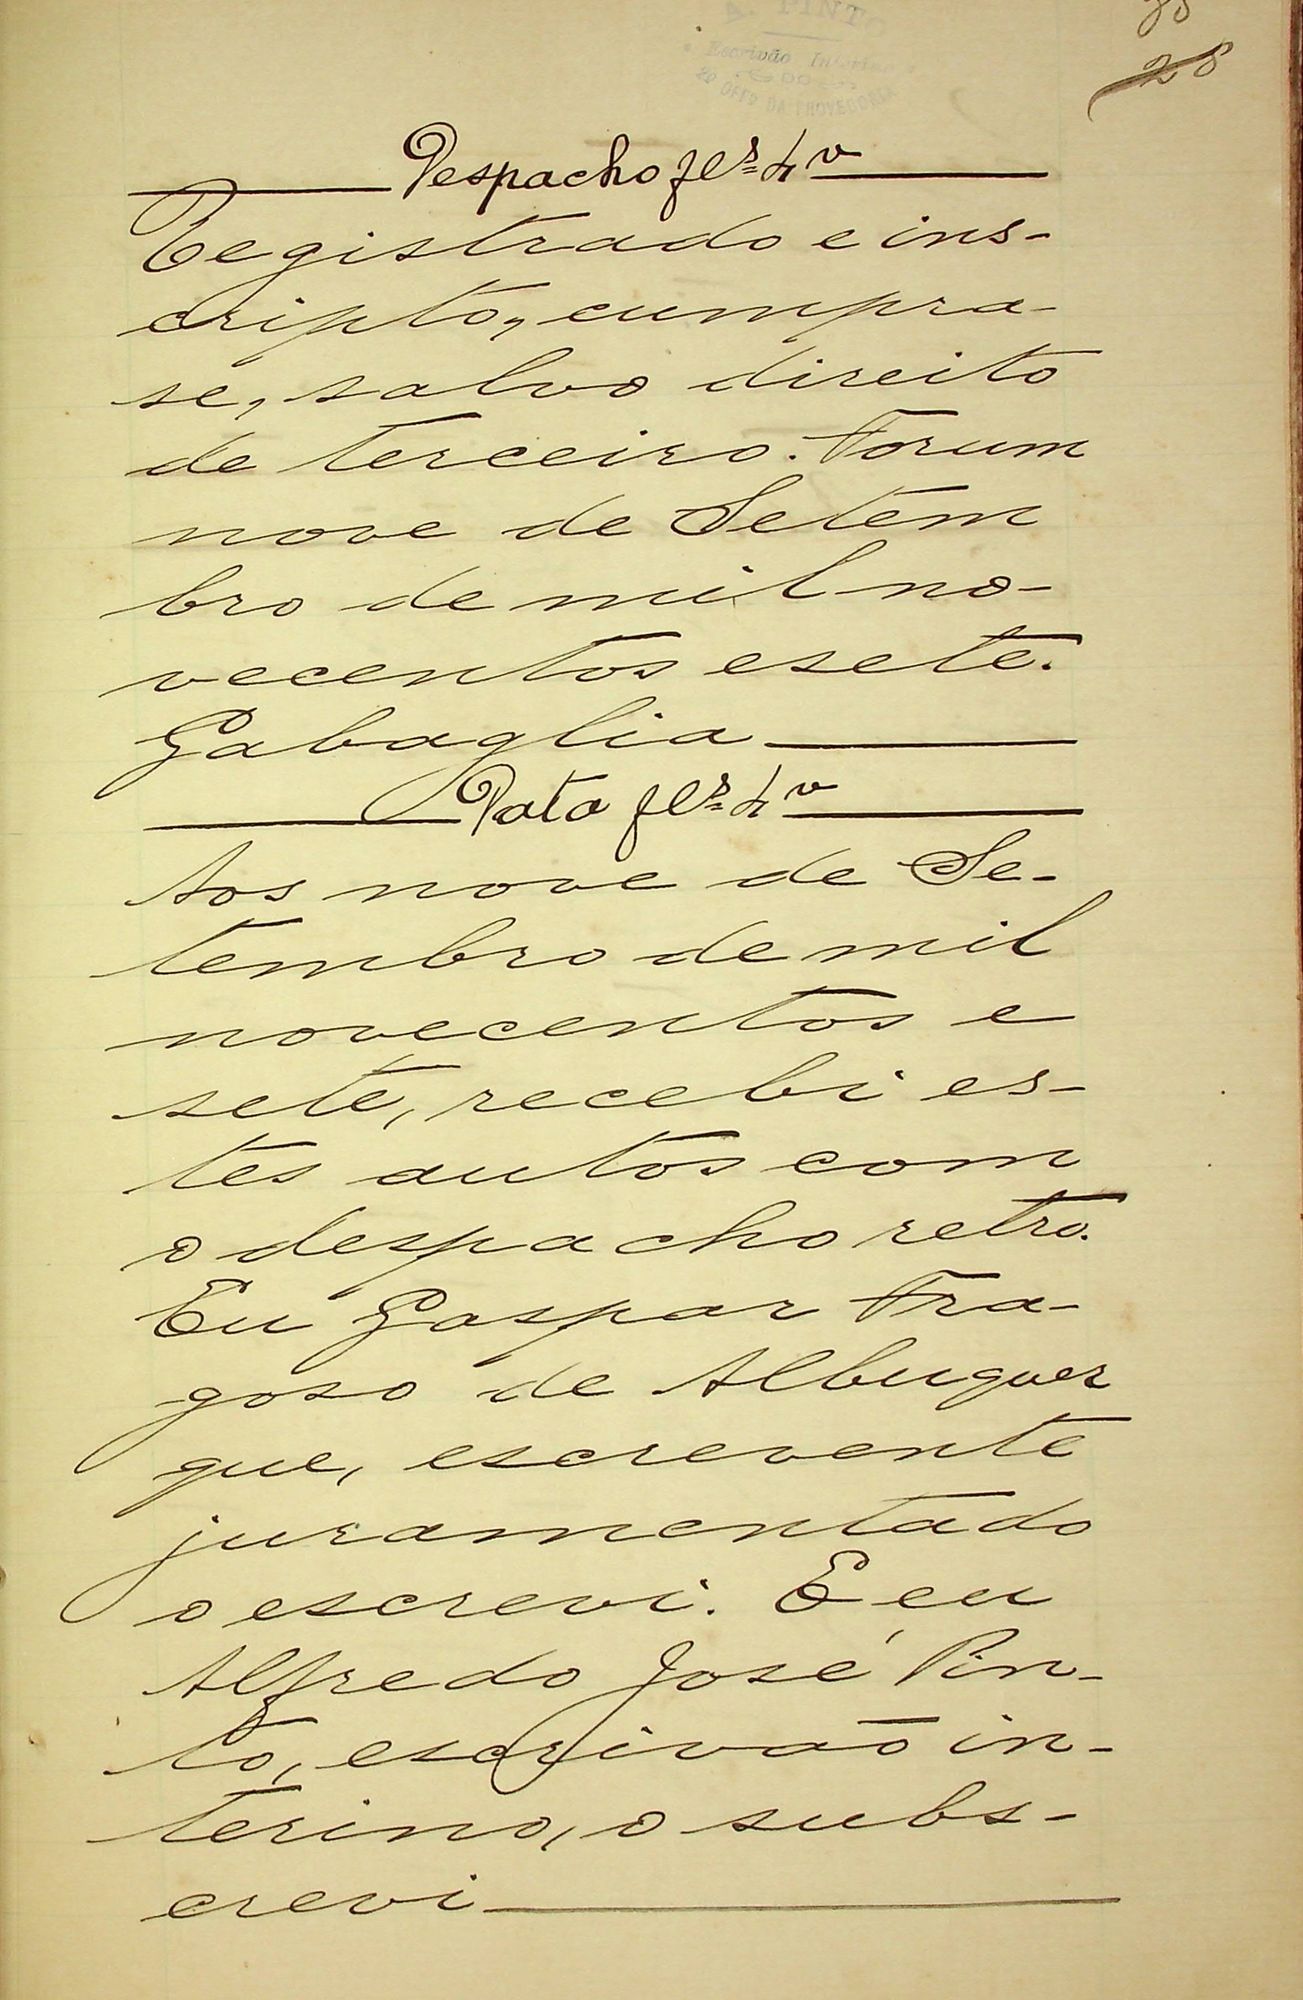 A. PINTO
Escrivão Interino
2º OFFº DA PROVEDORIA
28
Despacho fls 4 v
Registrado e ins-
cripto, cumpra-
se, salvo direito
de terceiro. Forum
nove de Setem
bro de mil no-
vecentos e sete.
Gabaglia
Data fls 4 v
Aos nove de Se-
tembro de mil
novecentos e
sete, recebi es-
tes autos com
o despacho retro.
Eu Gaspar Fra-
goso de Albuquer
que, escrevente
juramentado
o escrevi. E eu
Alfredo José Pin-
to, escrivão in-
terino, o subs-
crevi